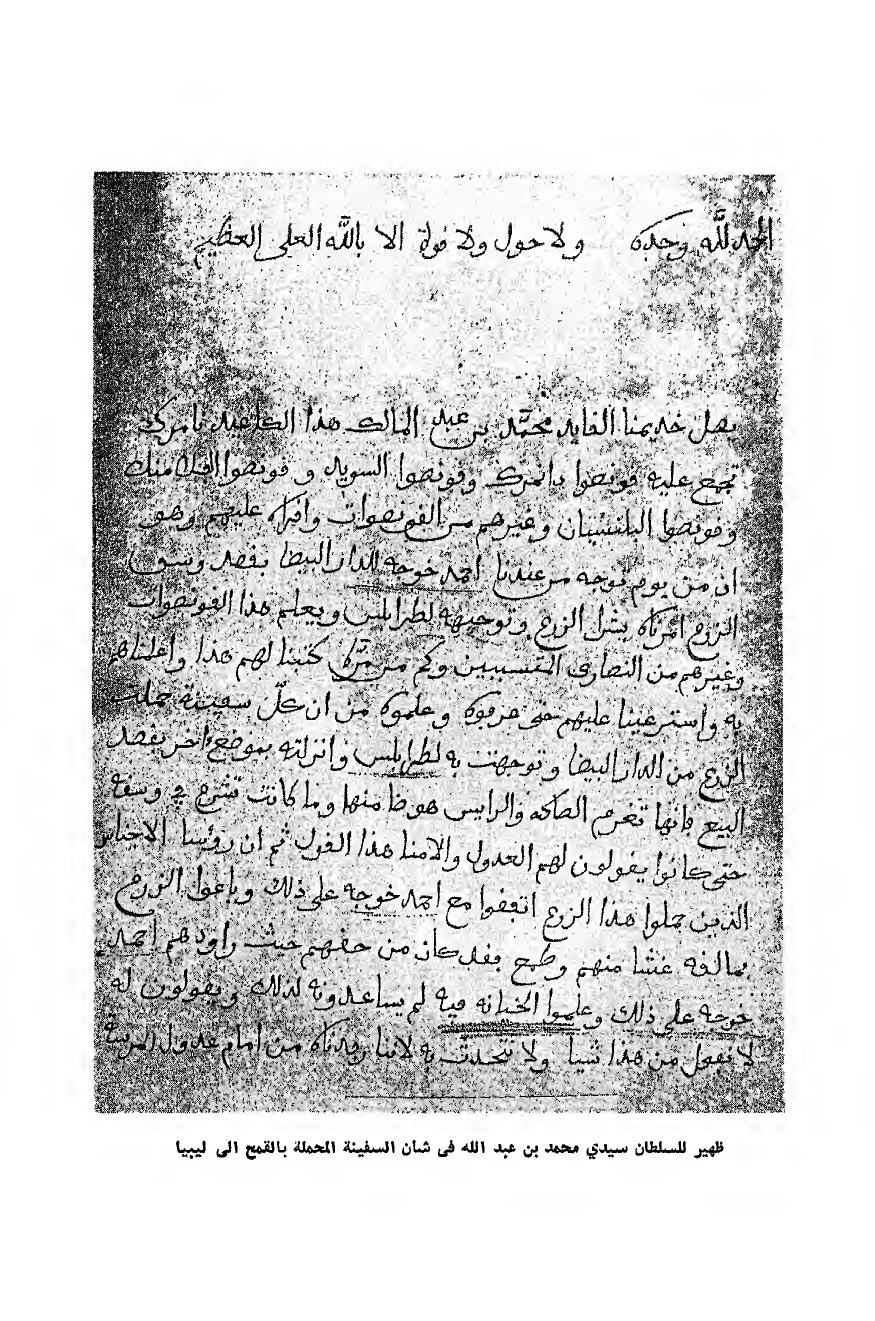 الحمد لله وحده ولا حول ولا قوة الا بالله العلي العظيم
يصل خديمنا القايد محمد بن عبد المالك هذا الكاغيد نامرك
تجمع عليه قونصوا دانمرك وقونصوا السويد و قونصوا الفلامنك
وقونصوا البلنسيان وغيرهم من القونصوات واقراه عليهم وهو
ان من يوم توجه من عندنا احمد خوجه للدار البيضا بقصد وسق
الزرع امرناه بشرا الزرع وتوجيهه لطرابلس ويعلم هذا القونصوات
وغيرهم من النصارى المتسببين وكم من مرة كتبنا لهم هذا واعلمناهم
به واسترعينا عليهم حتى عرفوه وعلموه من ان كل سفينة حملت
الزرع من الدار البيضا وتوجهت به لطرابلس وانزلته بموضع اخر بقصد
البيع فانها تغرم الصاكه والرايس هوضا منها وما كانت تشرع في وسقه
حتى كانوا يقولون لهم العدول والامنا هذا القول ثم ان رؤسا الاجناس
الذين حملوا هذا الزرع اتفقوا مع احمد خوجه على ذلك وباعوا الزرع
بمالقه غشا منهم وطمع فقد كان من حقهم حيث راودهم احمد
خوجه على ذلك وعلموا الخيانه فيه لم يساعدونه لذلك ويقولون له
لا نفعل من هذا شيا ولا نتحدث به لاننا رفدناه من امام عدول المرسة
ظهير للسلطان سيدي محمد بن عبد الله فى شأن السفينة المحملة بالقمح الى ليبيا